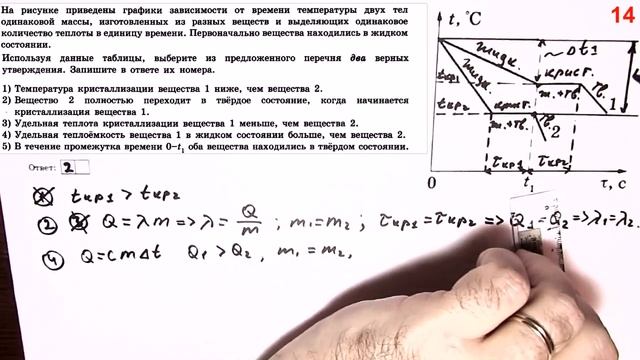 На рисунке приведены графики зависимости от времени температуры двух тел
одинаковой массы, изготовленных из разных веществ и выделяющих одинаковое
количество теплоты в единицу времени. Первоначально вещества находились в жидком
состоянии.
Используя данные таблицы, выберите из предложенного перечня два верных
утверждения. Запишите в ответе их номера.
1) Температура кристаллизации вещества 1 ниже, чем вещества 2.
2) Вещество 2 полностью переходит в твёрдое состояние, когда начинается
кристаллизация вещества 1.
3) Удельная теплота кристаллизации вещества 1 меньше, чем вещества 2.
4) Удельная теплоёмкость вещества 1 в жидком состоянии больше, чем вещества 2.
5) В течение промежутка времени 0–t₁ оба вещества находились в твёрдом состоянии.
Ответ: 2
14
t, °C
жидк.
Δt1
жидк.
крист.
tкр1
т.+тв.
тв.
1
tкр2
крист.
т.+тв.
тв.
2
τкр1 τкр2
0 t₁ τ, с
tкр1 > tкр2
2 3 Q = λm => λ = Q/m ; m₁=m₂ ; τкр1 = τкр2 => Q₁=Q₂ => λ₁=λ₂.
4 Q = cmΔt Q₁ > Q₂, m₁ = m₂,